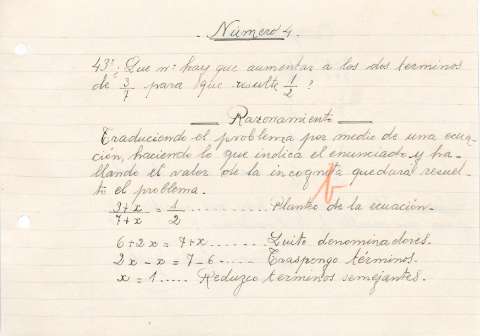 Número 4.
43º ¿ Que nº hay que aumentar a los dos terminos
de 3/7 para que resulte 1/2 ?
Razonamiento
Traduciendo el problema por medio de una ecua-
ción, haciendo lo que indica el enunciado y ha-
llando el valor de la incognita quedará resuel-
to el problema.
3+x/7+x = 1/2 ......... Planteo de la ecuación.
6+2x = 7+x ......... Quito denominadores.
2x - x = 7-6 ..... Traspongo términos.
x = 1 ..... Reduzco terminos semejantes.
b